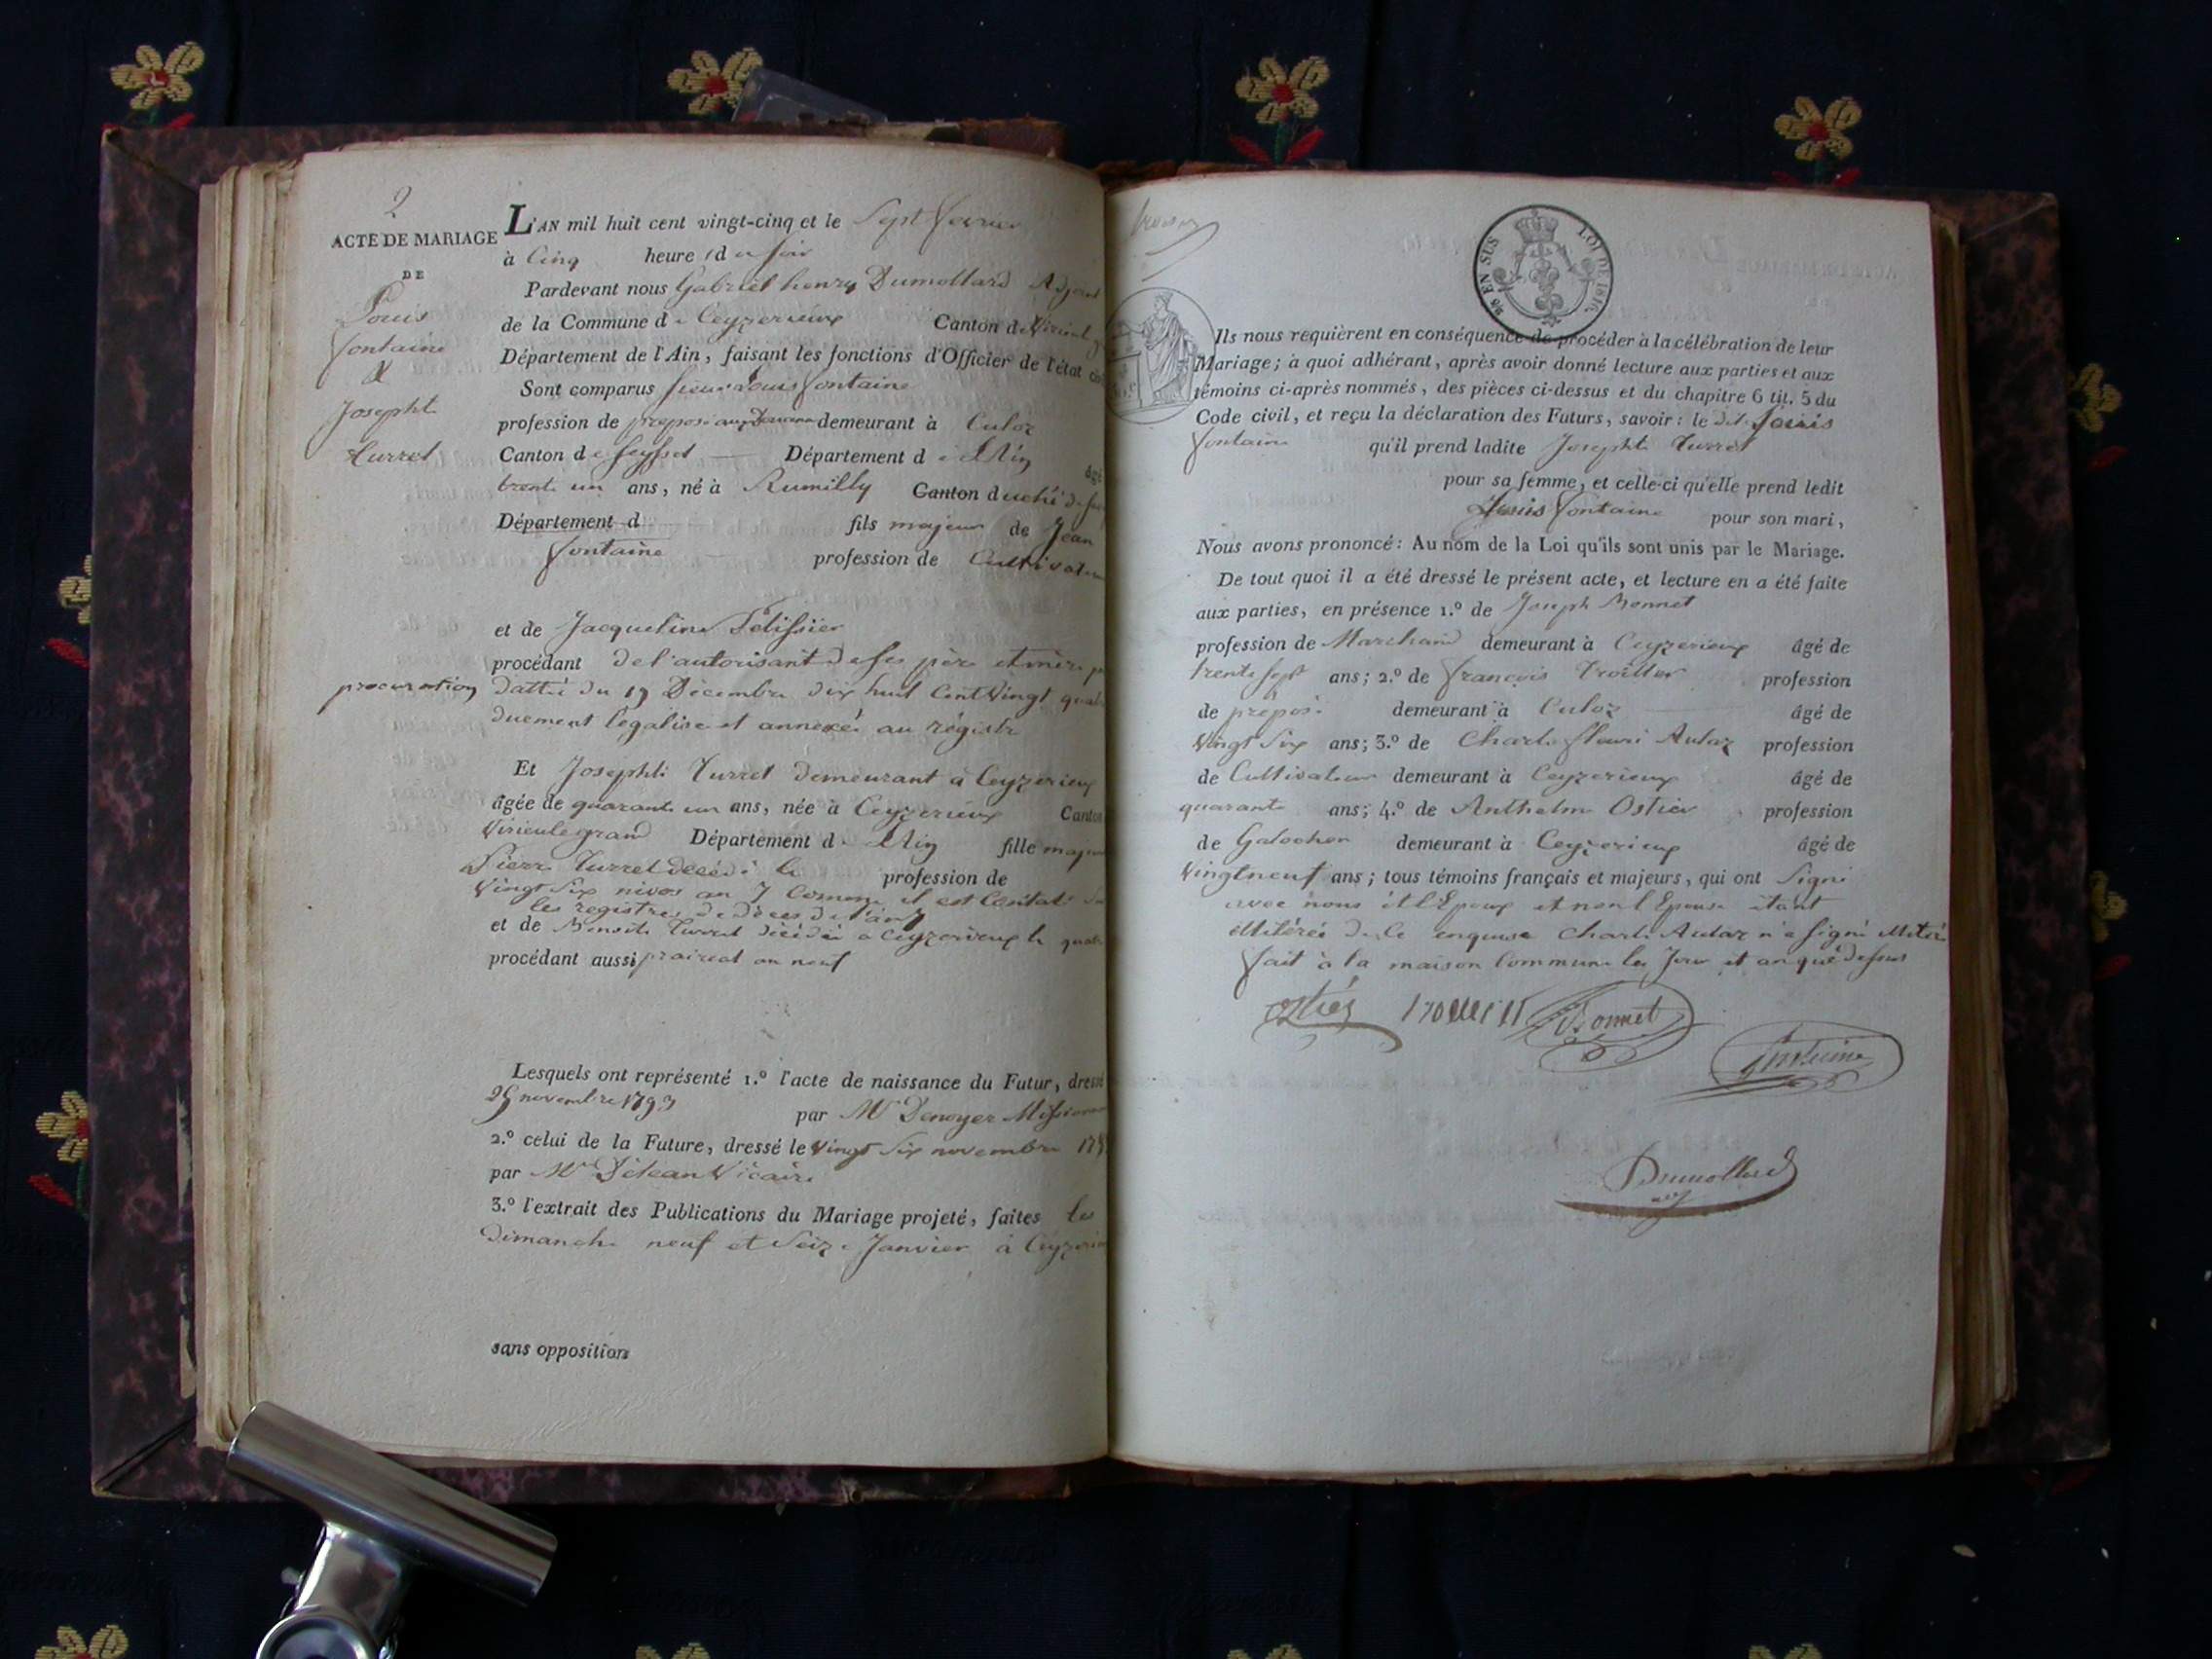 2
ACTE DE MARIAGE
DE
Louis
fontaine
&
Josephte
Turrel
L'AN mil huit cent vingt-cinq et le Sept fevrier
à Cinq heures du soir
Pardevant nous Gabriel henry Dumollard Adjoint
de la Commune de Ceyzerieux Canton de
Département de l'Ain, faisant les fonctions d'Officier de l'état
Sont comparus sieur Louis fontaine
profession de préposé aux Douanes demeurant à Culoz
Canton de Seyssel Département de l'Ain âgé
trente un ans, né à Rumilly Canton duché de
Département d fils majeur de Jean
fontaine profession de Cultivateur
et de Jacqueline Pelissier
procédant de l'autorisant de ses père et mère
procuration dattée du 19 Décembre dix huit Cent Vingt
duement légalisé et annexée au régistre
Et Josephte Turrel demeurant à Ceyzerieux
âgée de quarante un ans, née à Ceyzerieux Canton
Virieulegrand Département de l'Ain fille majeure
Pierre Turrel décédé le profession de
Vingt Six nivos an 7 Comme il est Constaté
les registres de décès de l'an 7
et de Turrel décédée à Ceyzerieux le
procédant aussi prairial an neuf
Lesquels ont représenté 1.º l'acte de naissance du Futur, dressé
novembre 1793 par Mr Denoyer Missionnaire
2.º celui de la Future, dressé le Vingt Six novembre
par Mr Vicaire
3.º l'extrait des Publications du Mariage projeté, faites les
Dimanche neuf et Seize Janvier à
sans opposition
EN SUS LOI DE 1816
Ils nous requièrent en conséquence de procéder à la célébration de leur
Mariage; à quoi adhérant, après avoir donné lecture aux parties et aux
témoins ci-après nommés, des pièces ci-dessus et du chapitre 6 tit. 5 du
Code civil, et reçu la déclaration des Futurs, savoir: le dit Louis
fontaine qu'il prend ladite Josephte Turrel
pour sa femme, et celle-ci qu'elle prend ledit
Louis fontaine pour son mari,
Nous avons prononcé: Au nom de la Loi qu'ils sont unis par le Mariage.
De tout quoi il a été dressé le présent acte, et lecture en a été faite
aux parties, en présence 1.º de Joseph Monnet
profession de Marchand demeurant à Ceyzerieux âgé de
trente sept ans; 2.º de françois profession
de préposé demeurant à Culoz âgé de
Vingt Six ans; 3.º de Charles fleuri profession
de Cultivateur demeurant à Ceyzerieux âgé de
quarante ans; 4.º de Anthelme Ostier profession
de Galocher demeurant à Ceyzerieux âgé de
Vingtneuf ans; tous témoins français et majeurs, qui ont Signé
avec nous et l'Epoux et non l'Epouse étant
illitérée de ce enquise Charles n'a signé
fait à la maison Commune les Jour et an que dessus
Ostier Monnet
fontaine
Dumollard